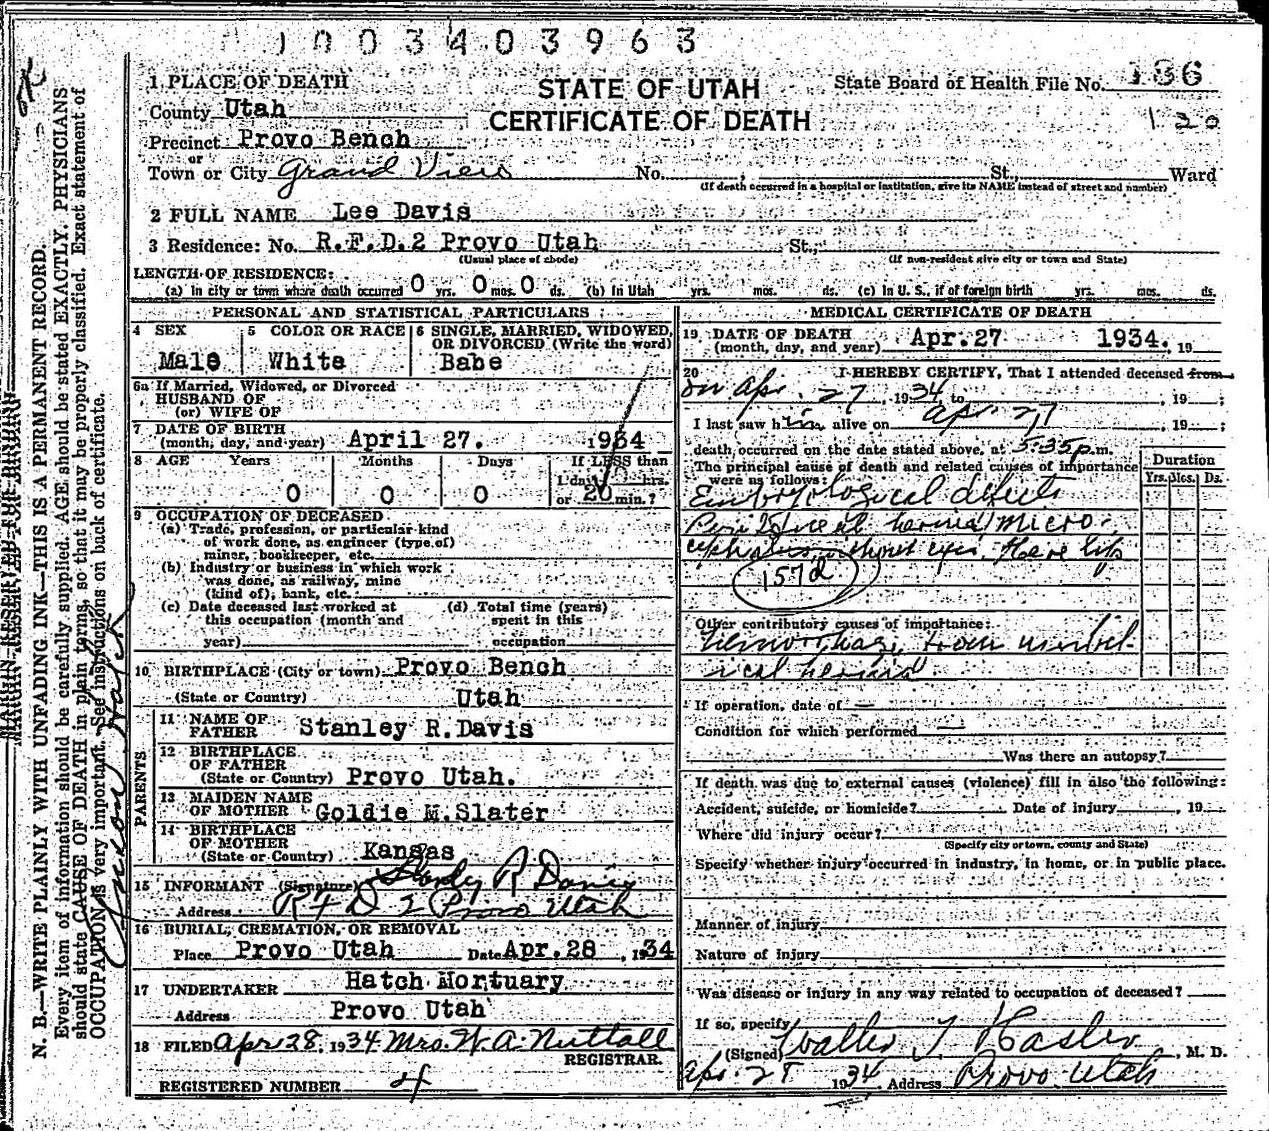 1003403963
1 PLACE OF DEATH
STATE OF UTAH
CERTIFICATE OF DEATH
State Board of Health File No. 136
130
County Utah
Precinct Provo Bench
or
Town or City Grand View No. , St., Ward
(If death occurred in a hospital or institution, give its NAME instead of street and number)
2 FULL NAME Lee Davis
3 Residence: No. R.F.D.2 Provo Utah St.,
(Usual place of abode) (If non-resident give city or town and State)
LENGTH OF RESIDENCE:
(a) In city or town where death occurred 0 yrs. 0 mos. 0 ds. (b) In Utah yrs. mos. ds. (c) In U. S., if of foreign birth yrs. mos. ds.
PERSONAL AND STATISTICAL PARTICULARS
4 SEX 5 COLOR OR RACE 6 SINGLE, MARRIED, WIDOWED, OR DIVORCED (Write the word)
Male White Babe
6a If Married, Widowed, or Divorced
HUSBAND OF
(or) WIFE OF
7 DATE OF BIRTH
(month, day, and year) April 27. 1934
8 AGE Years Months Days If LESS than
1 day hrs.
0 0 0 or 20 min.?
9 OCCUPATION OF DECEASED
(a) Trade, profession, or particular kind
of work done, as engineer (type of)
miner, bookkeeper, etc.
(b) Industry or business in which work
was done, as railway, mine
(kind of), bank, etc.
(c) Date deceased last worked at
this occupation (month and
year)
(d) Total time (years)
spent in this
occupation
10 BIRTHPLACE (City or town) Provo Bench
(State or Country) Utah
PARENTS
11 NAME OF
FATHER Stanley R. Davis
12 BIRTHPLACE
OF FATHER
(State or Country) Provo Utah.
13 MAIDEN NAME
OF MOTHER Goldie M. Slater
14 BIRTHPLACE
OF MOTHER
(State or Country) Kansas
15 INFORMANT (Signature) R Davis
Address R F D 2 Provo Utah
16 BURIAL, CREMATION, OR REMOVAL
Place Provo Utah Date Apr. 28, 1934
17 UNDERTAKER Hatch Mortuary
Address Provo Utah
18 FILED Apr 28, 1934 Mrs. W. A. Nuttall
REGISTRAR.
REGISTERED NUMBER 4
MEDICAL CERTIFICATE OF DEATH
19 DATE OF DEATH
(month, day, and year) Apr. 27 1934. , 19
20 I HEREBY CERTIFY, That I attended deceased from
on Apr. 27, 1934, to , 19 ;
I last saw him alive on Apr. 27 , 19 ;
death occurred on the date stated above, at 5:35 p.m.
The principal cause of death and related causes of importance
were as follows:
Duration
Yrs. Mos. Ds.
Embryological defects
hernia, micro-
cephalus, without eyes. Hare lip
157d
Other contributory causes of importance:
Hemorrhage from umbil-
ical hernia
If operation, date of —
Condition for which performed —
Was there an autopsy?
If death was due to external causes (violence) fill in also the following:
Accident, suicide, or homicide? Date of injury , 19
Where did injury occur?
(Specify city or town, county and State)
Specify whether injury occurred in industry, in home, or in public place.
Manner of injury
Nature of injury
Was disease or injury in any way related to occupation of deceased?
If so, specify
(Signed) Walter T Hasler, M. D.
Apr. 28 1934 Address Provo Utah
MARGIN RESERVED FOR BINDING
N. B.—WRITE PLAINLY WITH UNFADING INK—THIS IS A PERMANENT RECORD.
Every item of information should be carefully supplied. AGE should be stated EXACTLY. PHYSICIANS
should state CAUSE OF DEATH in plain terms, so that it may be properly classified. Exact statement of
OCCUPATION is very important. See instructions on back of certificate.